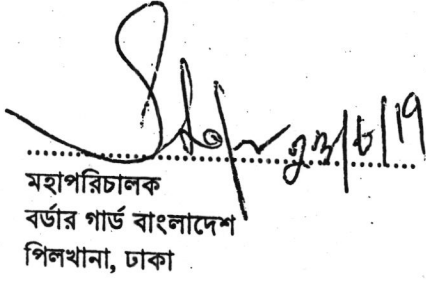 মহাপরিচালক
বর্ডার গার্ড বাংলাদেশ
পিলখানা, ঢাকা